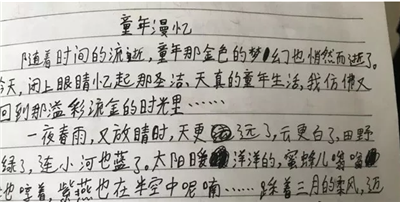 童年漫忆
随着时间的流逝,童年那金色的梦幻也悄然而逝了。
今天,闭上眼睛忆起那圣洁、天真的童年生活,我仿佛又
回到那溢彩流金的时光里……
一夜春雨,又放晴时,天更远了,云更白了,田野
绿了,连小河也蓝了。太阳暖洋洋的,蜜蜂儿嗡嗡
地哼着,紫燕也在半空中呢喃……踩着三月的柔风,迈